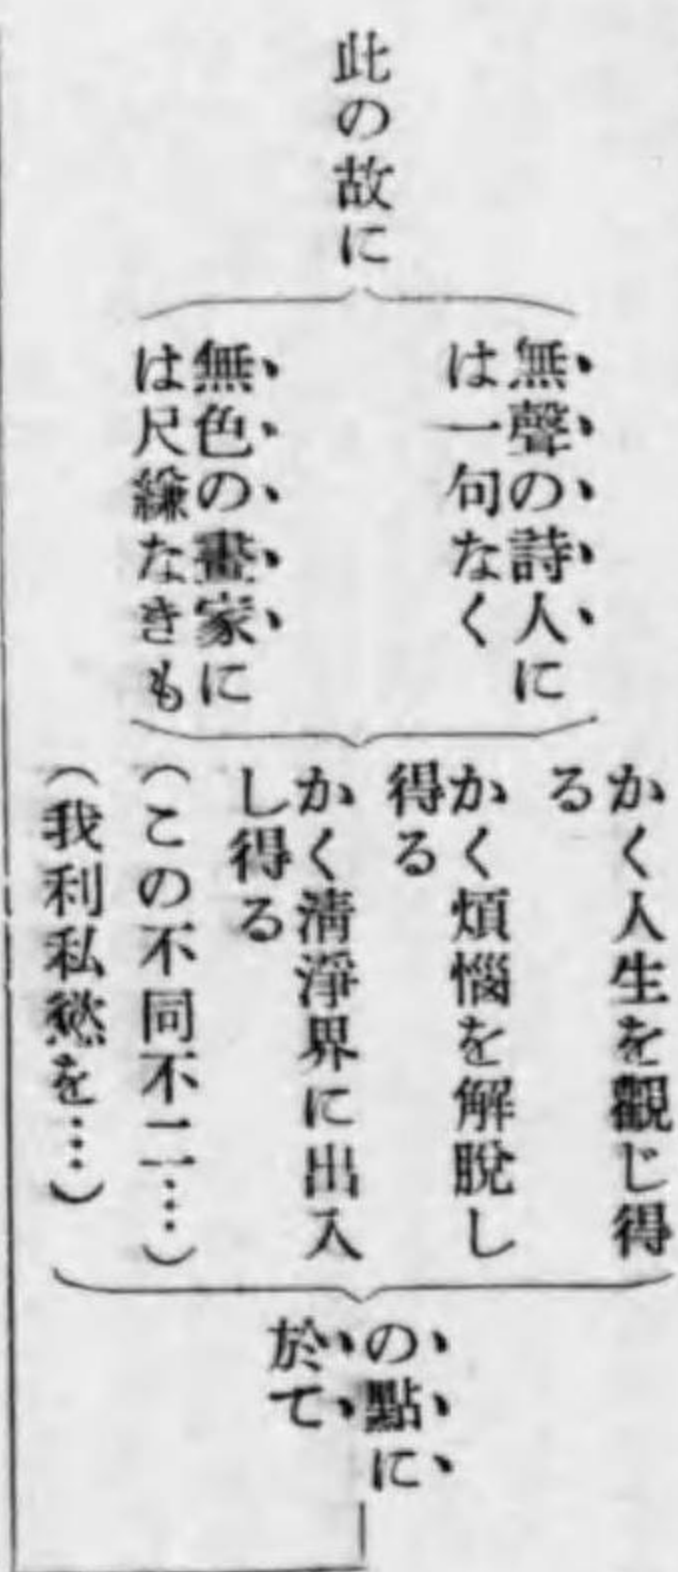 此の故に
無聲の詩人に
は一句なく
無色の畫家に
は尺縑なきも
かく人生を觀じ得
る
かく煩惱を解脫し
得る
かく淸淨界に出入
し得る
（この不同不二…）
（我利私慾を…）
の點に
於て